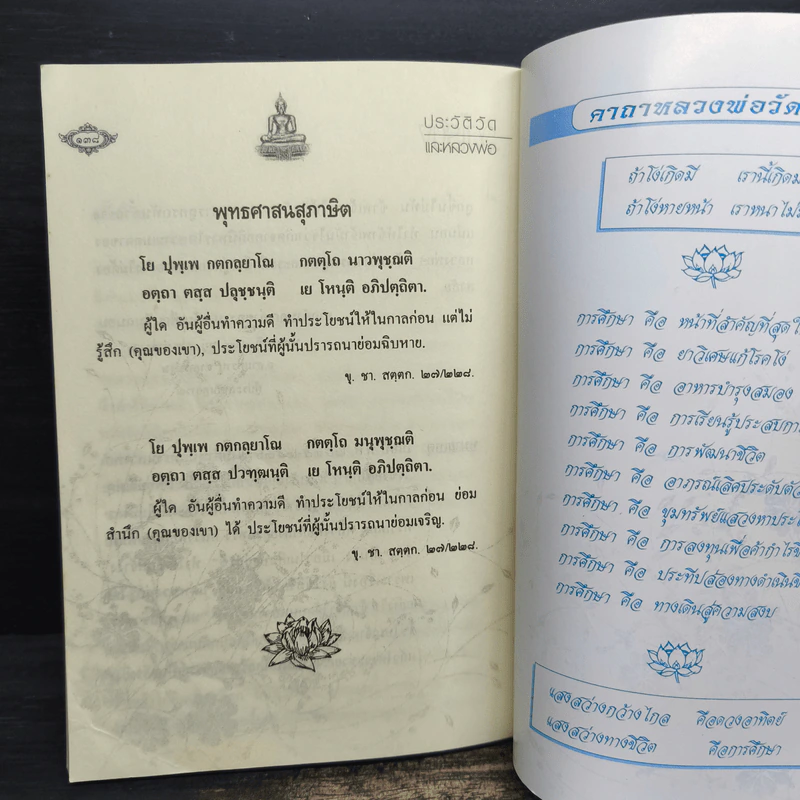 ๑๓๘
ประวัติวัด
และหลวงพ่อ
พุทธศาสนสุภาษิต
โย ปุพฺเพ กตกลฺยาโณ กตตฺโถ นาวพุชฺฌติ
อตฺถา ตสฺส ปลุชฺชนฺติ เย โหนฺติ อภิปตฺถิตา.
ผู้ใด อันผู้อื่นทำความดี ทำประโยชน์ให้ในกาลก่อน แต่ไม่
รู้สึก (คุณของเขา), ประโยชน์ที่ผู้นั้นปรารถนาย่อมฉิบหาย.
ขุ. ชา. สตฺตก. ๒๗/๒๒๘.
โย ปุพฺเพ กตกลฺยาโณ กตตฺโถ มนุพุชฺฌติ
อตฺถา ตสฺส ปวฑฺฒนฺติ เย โหนฺติ อภิปตฺถิตา.
ผู้ใด อันผู้อื่นทำความดี ทำประโยชน์ให้ในกาลก่อน ย่อม
สำนึก (คุณของเขา) ได้ ประโยชน์ที่ผู้นั้นปรารถนาย่อมเจริญ.
ขุ. ชา. สตฺตก. ๒๗/๒๒๘.
คาถาหลวงพ่อวัด
ถ้าโง่เกิดมี เรานี้เกิด
ถ้าโง่หายหน้า เราหนาไม่
การศึกษา คือ หน้าที่สำคัญที่สุด
การศึกษา คือ ยาวิเศษแก้โรคโง่
การศึกษา คือ อาหารบำรุงสมอง
การศึกษา คือ การเรียนรู้ประสบ
การศึกษา คือ การพัฒนาชีวิต
การศึกษา คือ อาภรณ์เลิศประดับตัว
การศึกษา คือ ขุมทรัพย์แสวงหา
การศึกษา คือ การลงทุนเพื่อค้ากำไร
การศึกษา คือ ประทีปส่องทางดำเนิน
การศึกษา คือ ทางเดินสู่ความสงบ
แสงสว่างกว้างไกล คือดวงอาทิตย์
แสงสว่างทางชีวิต คือการศึกษา